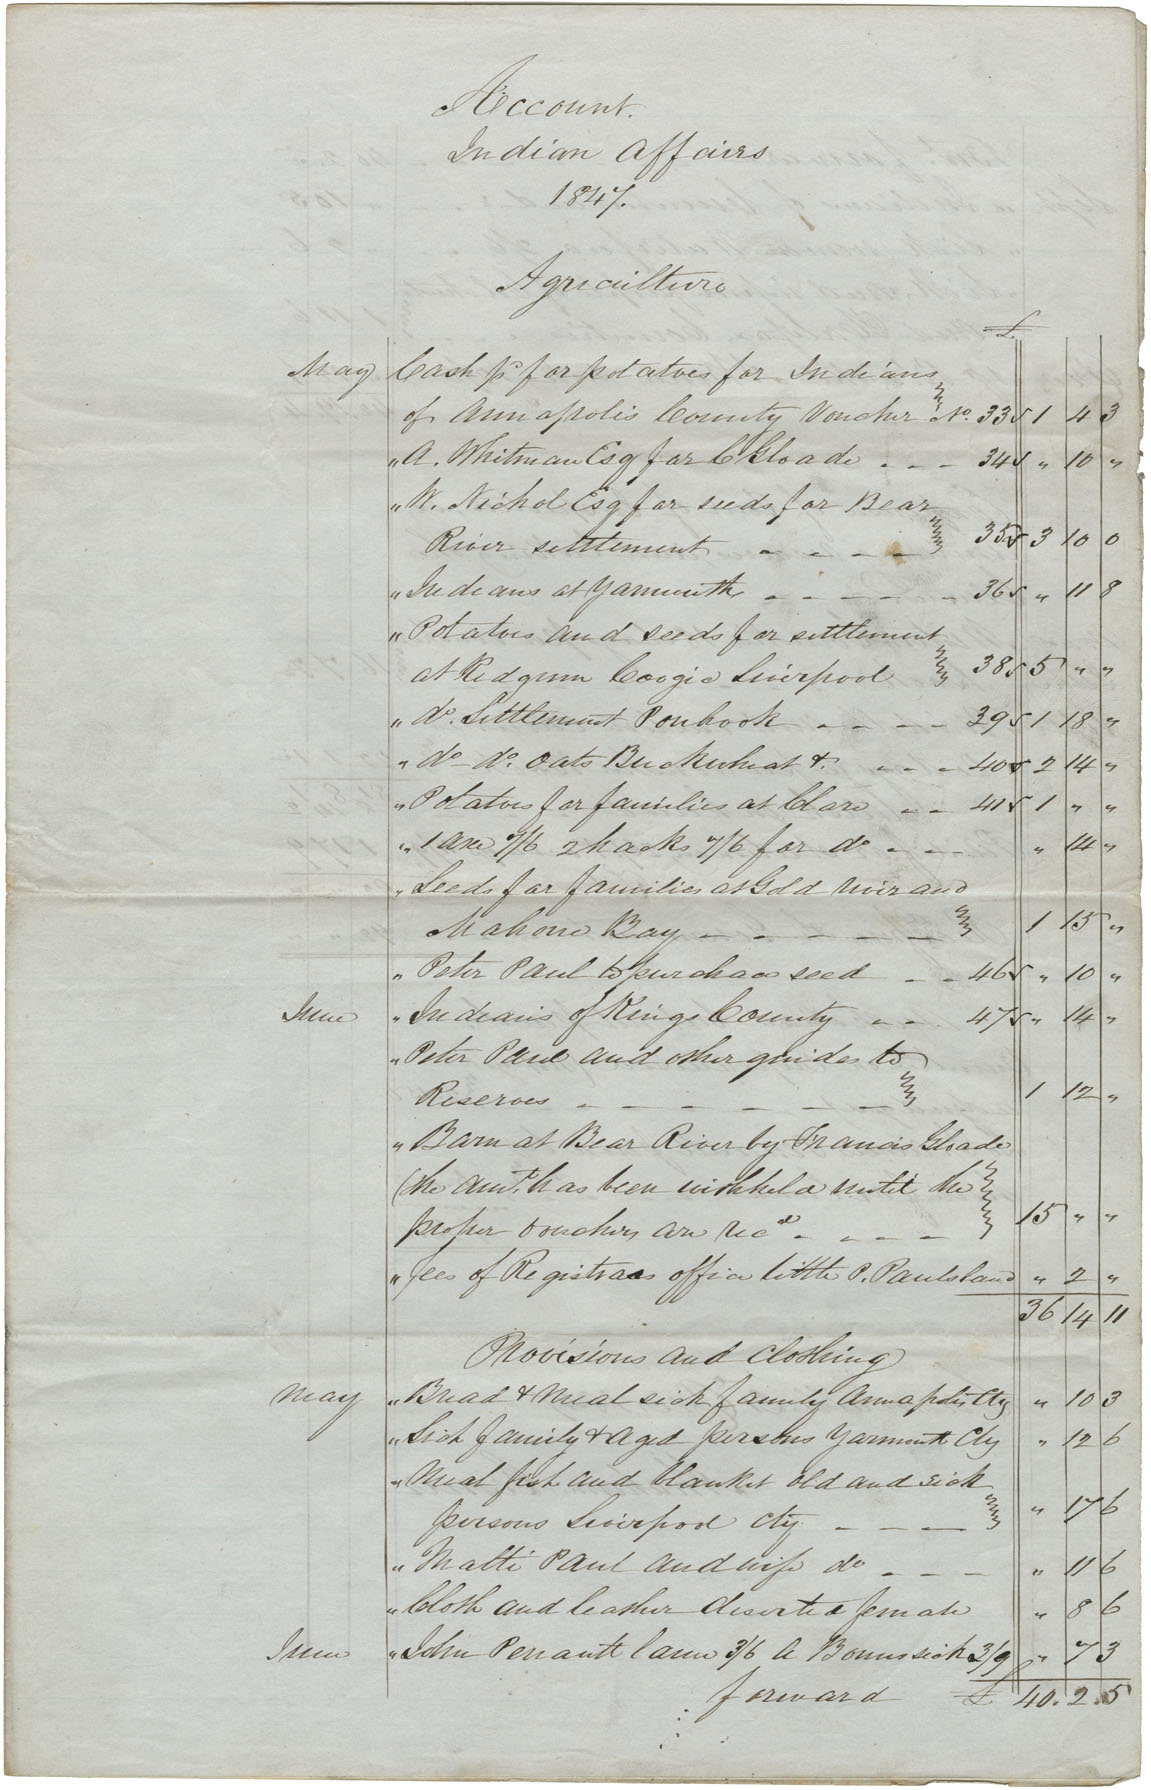 Account.
Indian Affairs
1847.
Agriculture
£
May Cash pd for potatoes for Indians
of Annapolis County Voucher No. 33 1 4 3
" A. Whitman Esq for C Gloade - - - 34 " 10 "
" W. Nichol Esq for seeds for Bear
River settlement - - - - 35 3 10 0
" Indians at Yarmouth - - - - - 36 " 11 8
" Potatoes and seeds for settlement
at Kedgum Coogic Liverpool 38 5 " "
" do. Settlement Ponhook - - - - 39 1 18 "
" do do. Oats Buckwheat &. - - - 40 2 14 "
" Potatoes for families at Clare - - 41 1 " "
" 1 axe 7/6 2 hacks 7/6 for do - - - " 14 "
" Seeds for families at Gold river and
Mahone Bay - - - - - - 1 15 "
" Peter Paul to purchase seed - - 46 " 10 "
June " Indians of Kings County - - 47 " 14 "
" Peter Paul and other guides to
Reserves - - - - - - - 1 12 "
" Barn at Bear River by Francis Gloade
(the amt. has been withheld until the
proper vouchers are recd - - - - 15 " "
" fees of Registrars office little P. Pauls land " 2 "
36 14 11
Provisions and Clothing
May " Bread & Meal sick family Annapolis Cty " 10 3
" Sick family & Aged persons Yarmouth Cty " 12 6
" Meal fish and blanket old and sick
persons Liverpool Cty - - - - " 17 6
" Malti Paul and wife do - - - " 11 6
" Cloth and leather deserted female " 8 6
June " John Penault lame 3/6 A Bonus sick 3/9 " 7 3
forward £ 40. 2. 5